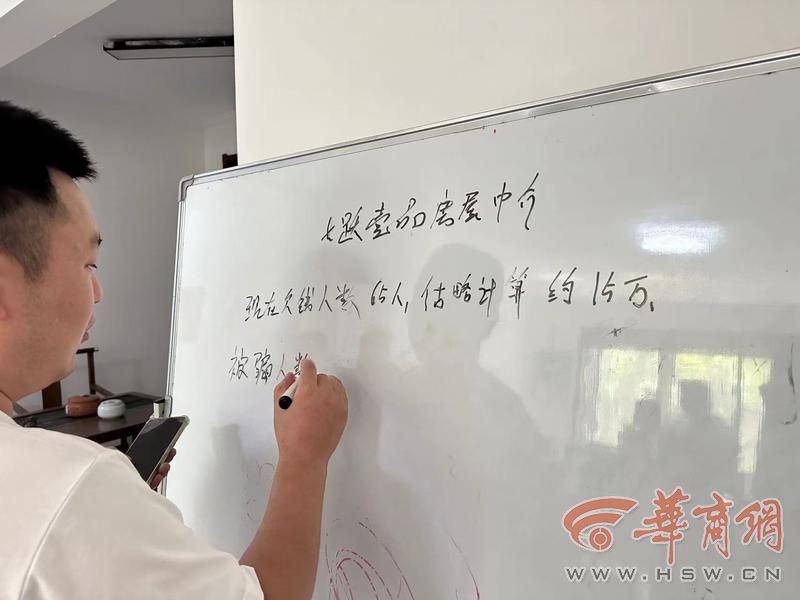 七跃壹品房屋中介
现在欠钱人数65人,估略计算约15万、
被骗人数
華商網
WWW.HSW.CN